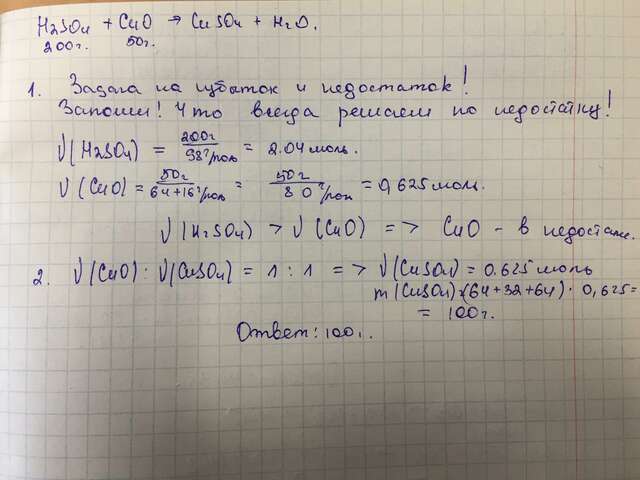 H2SO4 + CuO → CuSO4 + H2O.
200г. 50г.
1. Задага на избыток и недостаток!
Запомни! Что всегда решаем по недостатку!
ν(H2SO4) = 200г / 98г/моль = 2.04 моль.
ν(CuO) = 50г / 64+16г/моль = 50г / 80г/моль = 0,625 моль.
ν(H2SO4) > ν(CuO) => CuO - в недостатке.
2. ν(CuO) : ν(CuSO4) = 1 : 1 => ν(CuSO4) = 0.625 моль
m(CuSO4) = (64+32+64) · 0,625 =
= 100г.
Ответ: 100г.